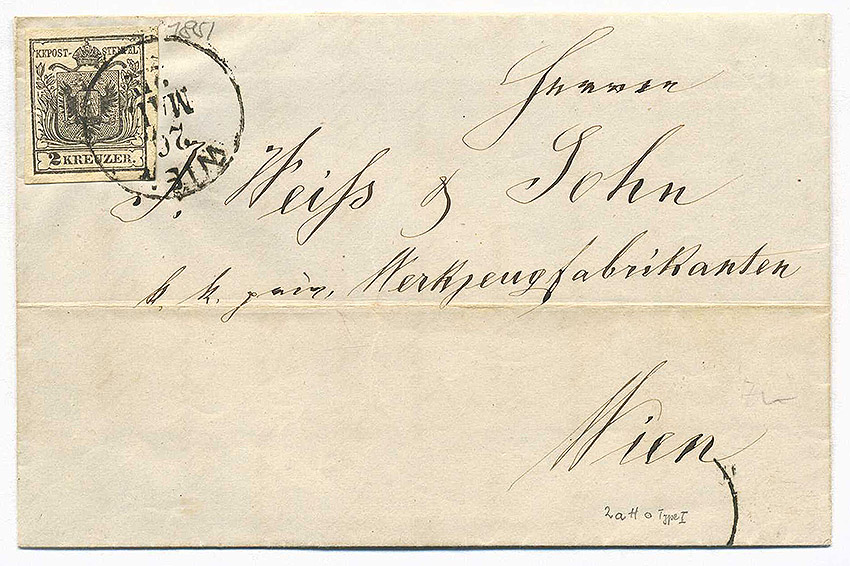 KKPOST-STEMPEL
2 KREUZER.
WIEN
MAI
Herren
J. Weiss & Sohn
k. k. priv. Werkzeugfabrikanten
Wien
2 a H o Type I